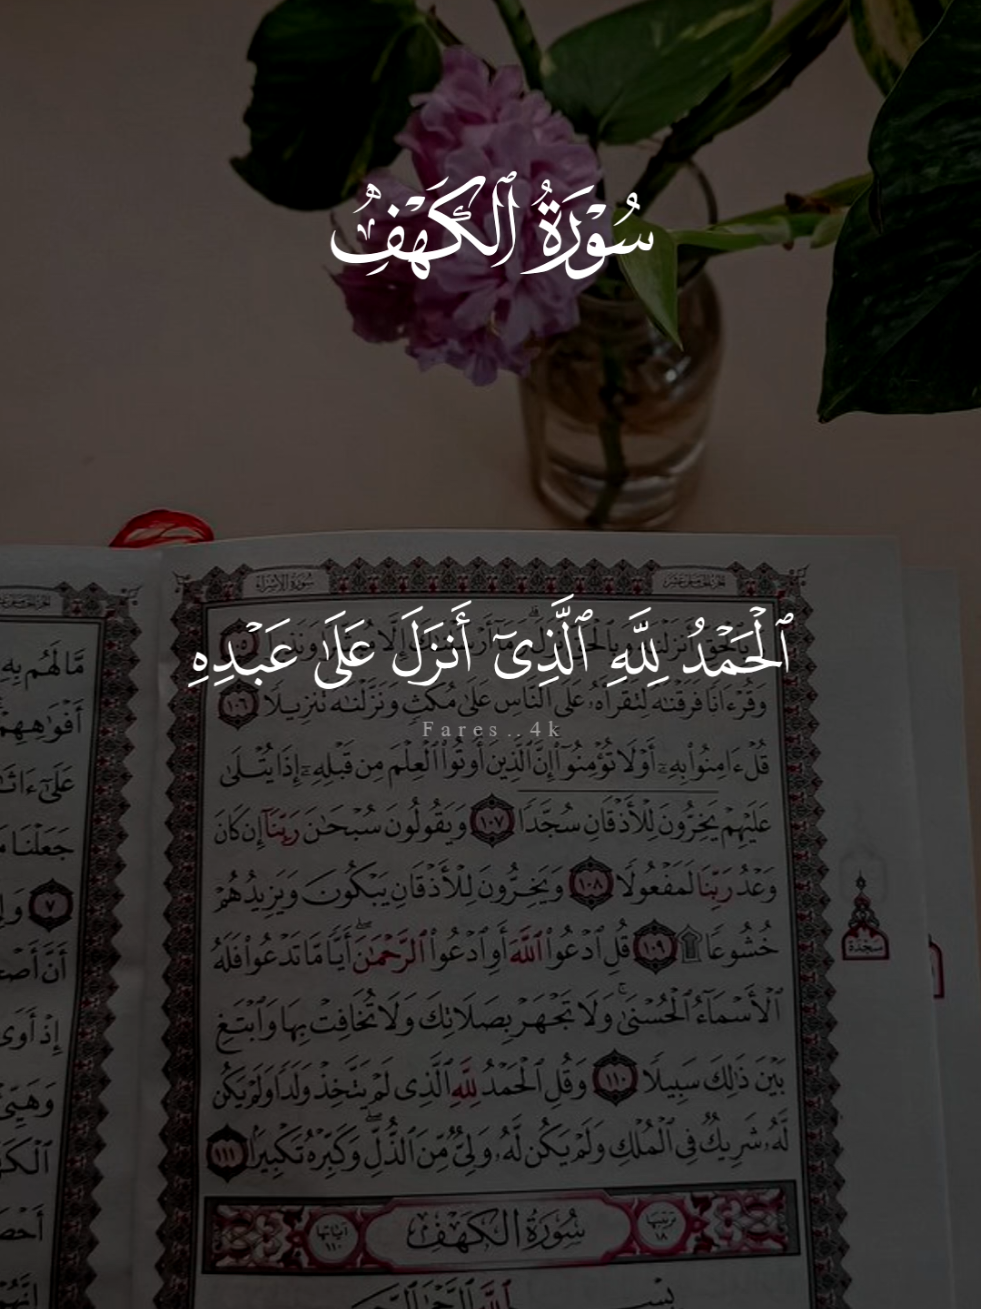 سُوْرَةُ ٱلْكَهْفِ
ٱلْحَمْدُ لِلَّهِ ٱلَّذِىٓ أَنزَلَ عَلَىٰ عَبْدِهِ
Fares..4k
سُورَةُ الإِسْرَاءِ
وَقُرْءَانًا فَرَقْنَٰهُ لِتَقْرَأَهُۥ عَلَى ٱلنَّاسِ عَلَىٰ مُكْثٍ وَنَزَّلْنَٰهُ تَنزِيلًا ١٠٦
قُلْ ءَامِنُوا۟ بِهِۦٓ أَوْ لَا تُؤْمِنُوٓا۟ إِنَّ ٱلَّذِينَ أُوتُوا۟ ٱلْعِلْمَ مِن قَبْلِهِۦٓ إِذَا يُتْلَىٰ
عَلَيْهِمْ يَخِرُّونَ لِلْأَذْقَانِ سُجَّدًا ١٠٧ وَيَقُولُونَ سُبْحَٰنَ رَبِّنَآ إِن كَانَ
وَعْدُ رَبِّنَا لَمَفْعُولًا ١٠٨ وَيَخِرُّونَ لِلْأَذْقَانِ يَبْكُونَ وَيَزِيدُهُمْ
خُشُوعًا ۩ ١٠٩ قُلِ ٱدْعُوا۟ ٱللَّهَ أَوِ ٱدْعُوا۟ ٱلرَّحْمَٰنَ ۖ أَيًّا مَّا تَدْعُوا۟ فَلَهُ
ٱلْأَسْمَآءُ ٱلْحُسْنَىٰ ۚ وَلَا تَجْهَرْ بِصَلَاتِكَ وَلَا تُخَافِتْ بِهَا وَٱبْتَغِ
بَيْنَ ذَٰلِكَ سَبِيلًا ١١٠ وَقُلِ ٱلْحَمْدُ لِلَّهِ ٱلَّذِى لَمْ يَتَّخِذْ وَلَدًا وَلَمْ يَكُن
لَّهُۥ شَرِيكٌ فِى ٱلْمُلْكِ وَلَمْ يَكُن لَّهُۥ وَلِىٌّ مِّنَ ٱلذُّلِّ ۖ وَكَبِّرْهُ تَكْبِيرًۢا ١١١
سَجْدَة
تَرتيبها ١٨
سُورَةُ الكَهْفِ
آيَاتُهَا ١١٠
مَّا لَهُم بِهِ
جَعَلْنَا
٧